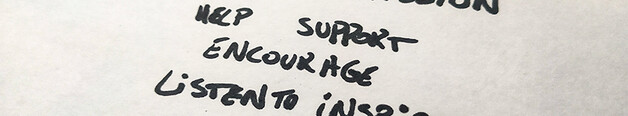 HELP SUPPORT
ENCOURAGE
LISTEN TO